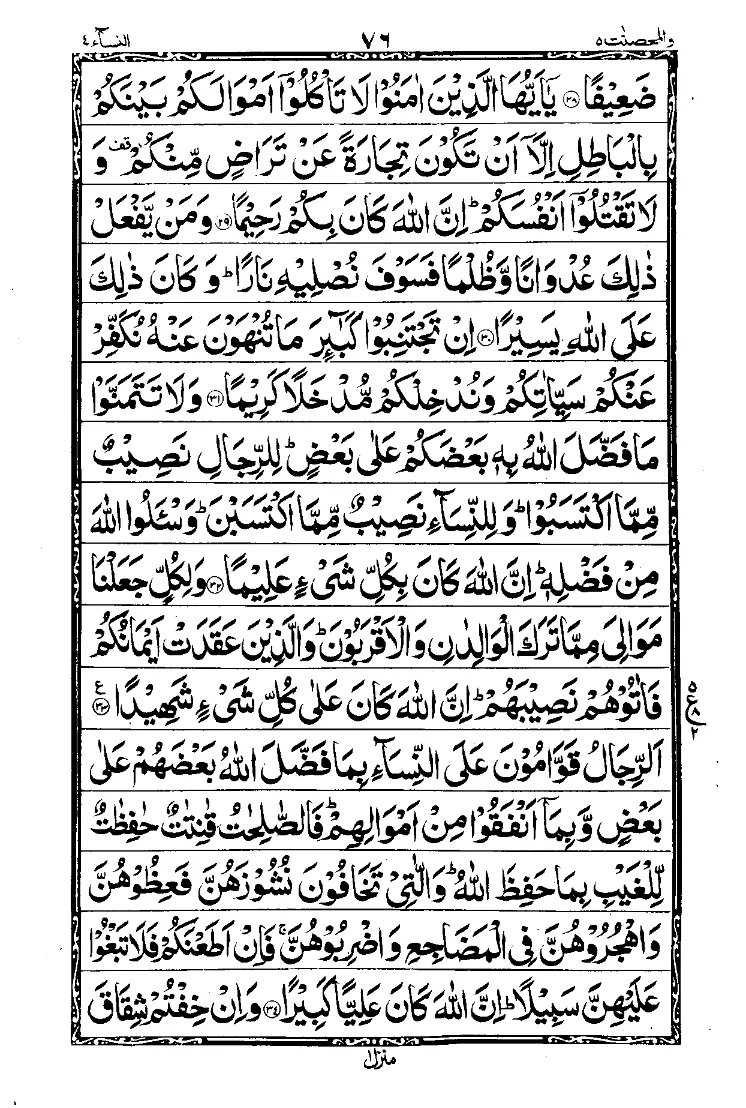 والمحصنٰت ۵ ۷۶ النساء ۴
ضَعِيْفًا ﴿۲۸﴾ يٰٓاَيُّهَا الَّذِيْنَ اٰمَنُوْا لَا تَاْكُلُوْٓا اَمْوَالَكُمْ بَيْنَكُمْ
بِالْبَاطِلِ اِلَّآ اَنْ تَكُوْنَ تِجَارَةً عَنْ تَرَاضٍ مِّنْكُمْ ۫ وَ
لَا تَقْتُلُوْٓا اَنْفُسَكُمْ ؕ اِنَّ اللّٰهَ كَانَ بِكُمْ رَحِيْمًا ﴿۲۹﴾ وَمَنْ يَّفْعَلْ
ذٰلِكَ عُدْوَانًا وَّظُلْمًا فَسَوْفَ نُصْلِيْهِ نَارًا ؕ وَكَانَ ذٰلِكَ
عَلَى اللّٰهِ يَسِيْرًا ﴿۳۰﴾ اِنْ تَجْتَنِبُوْا كَبَآئِرَ مَا تُنْهَوْنَ عَنْهُ نُكَفِّرْ
عَنْكُمْ سَيِّاٰتِكُمْ وَنُدْخِلْكُمْ مُّدْخَلًا كَرِيْمًا ﴿۳۱﴾ وَلَا تَتَمَنَّوْا
مَا فَضَّلَ اللّٰهُ بِهٖ بَعْضَكُمْ عَلٰى بَعْضٍ ؕ لِلرِّجَالِ نَصِيْبٌ
مِّمَّا اكْتَسَبُوْا ؕ وَلِلنِّسَآءِ نَصِيْبٌ مِّمَّا اكْتَسَبْنَ ؕ وَسْـَٔلُوا اللّٰهَ
مِنْ فَضْلِهٖ ؕ اِنَّ اللّٰهَ كَانَ بِكُلِّ شَىْءٍ عَلِيْمًا ﴿۳۲﴾ وَلِكُلٍّ جَعَلْنَا
مَوَالِىَ مِمَّا تَرَكَ الْوَالِدٰنِ وَالْاَقْرَبُوْنَ ؕ وَالَّذِيْنَ عَقَدَتْ اَيْمَانُكُمْ
فَاٰتُوْهُمْ نَصِيْبَهُمْ ؕ اِنَّ اللّٰهَ كَانَ عَلٰى كُلِّ شَىْءٍ شَهِيْدًا ﴿۳۳﴾ ع
اَلرِّجَالُ قَوَّامُوْنَ عَلَى النِّسَآءِ بِمَا فَضَّلَ اللّٰهُ بَعْضَهُمْ عَلٰى
بَعْضٍ وَّبِمَآ اَنْفَقُوْا مِنْ اَمْوَالِهِمْ ؕ فَالصّٰلِحٰتُ قٰنِتٰتٌ حٰفِظٰتٌ
لِّلْغَيْبِ بِمَا حَفِظَ اللّٰهُ ؕ وَالّٰتِىْ تَخَافُوْنَ نُشُوْزَهُنَّ فَعِظُوْهُنَّ
وَاهْجُرُوْهُنَّ فِى الْمَضَاجِعِ وَاضْرِبُوْهُنَّ ۚ فَاِنْ اَطَعْنَكُمْ فَلَا تَبْغُوْا
عَلَيْهِنَّ سَبِيْلًا ؕ اِنَّ اللّٰهَ كَانَ عَلِيًّا كَبِيْرًا ﴿۳۴﴾ وَاِنْ خِفْتُمْ شِقَاقَ
ع ۵ ۸ ۲
منزل ۱